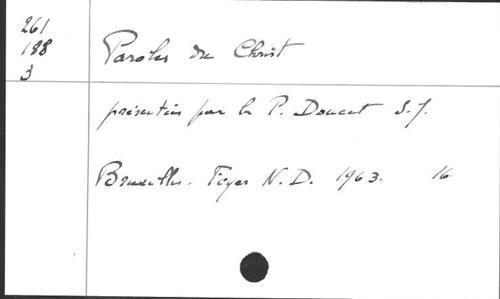 261
188
3
Paroles du Christ
présentées par le P. Doucet S.J.
Bruxelles. Foyer N.D. 1963. 16